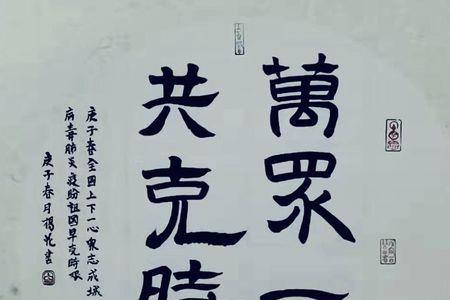 萬眾一
共克時
庚子春全国上下一心衆志成城
病毒肺炎疫盼祖国早克時艰
庚子春月書